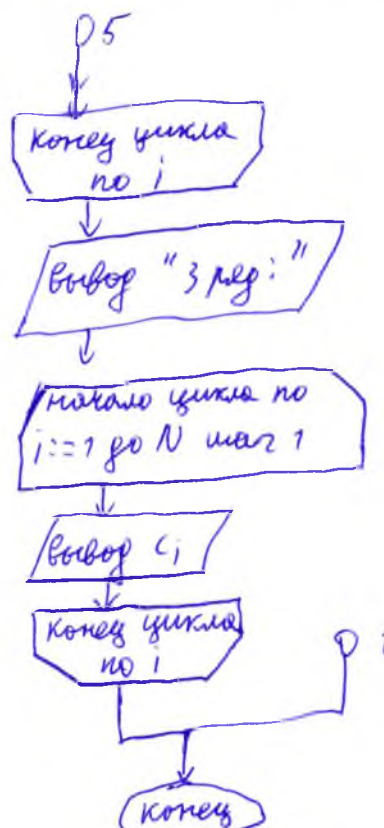 5
конец цикла
по i
вывод "3 ряд:"
начало цикла по
i:=1 до N шаг 1
вывод ci
конец цикла
по i
конец